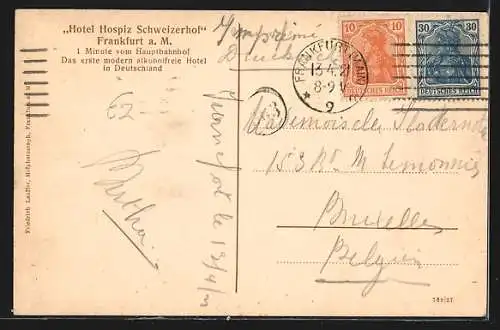 „Hotel Hospiz Schweizerhof"
Frankfurt a. M.
1 Minute vom Hauptbahnhof
Das erste modern alkoholfreie Hotel
in Deutschland
Imprimé
Drucksache
10 10
DEUTSCHES REICH
30 30
DEUTSCHES REICH
FRANKFURT (MAIN)
13.4.21
8-9 V
9
62
Bertha
Francfort le 13/4/21
Mademoiselle
153 Bd M Lemonnier
Bruxelles
Belgien
Friedrich Lauffer, Hofphotograph, Frankfurt a. M.